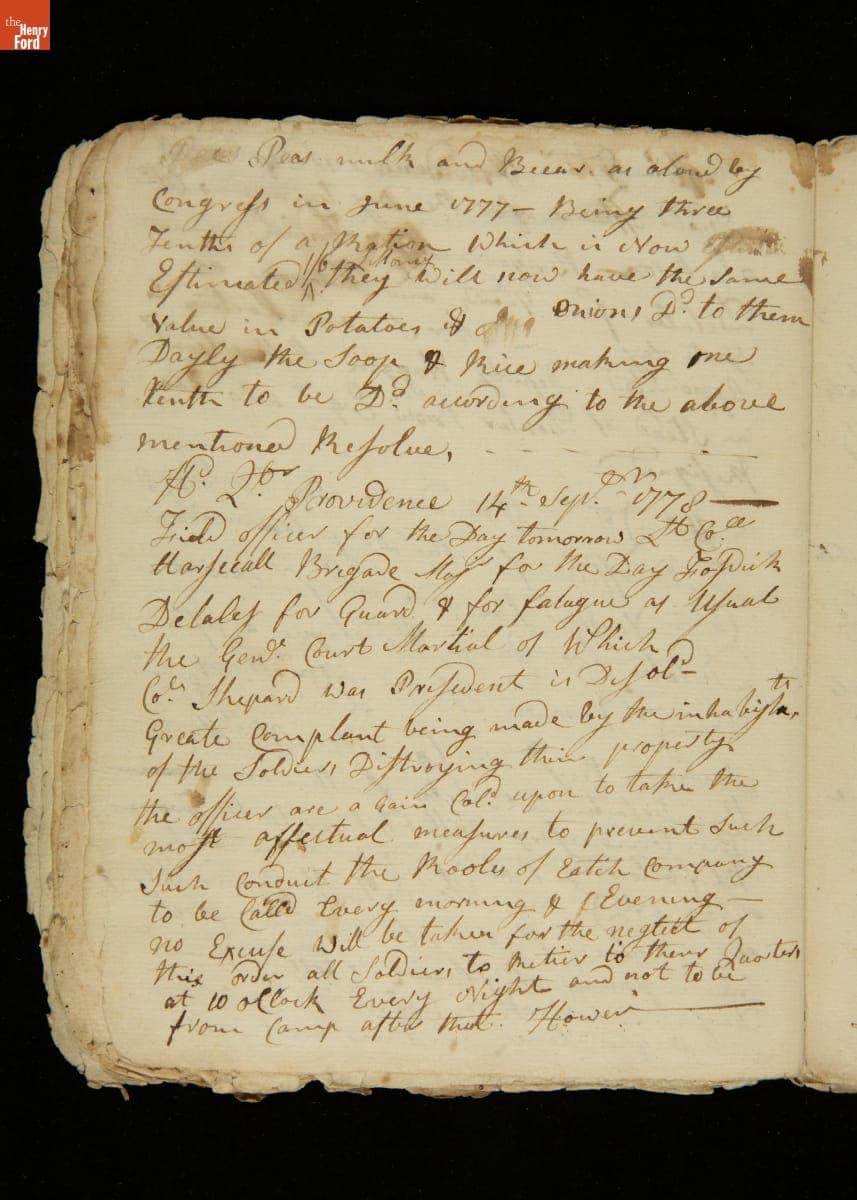 the Henry Ford
Peas milk and Beear. as aloud by
Congress in June 1777 - Being three
Tenths of a Ration Which is Now
Estimated ^ they Will now have the same
Value in Potatoes & Onions Dd. to them
Dayly the Soop & Rice making one
tenth to be Dd. acording to the above
mentioned Resolve,
Hd. Qtr. Providence 14th. Sepr. 1778
Field officer for the Day tomorrow Lt Coll
Marseeall Brigade Majr for the Day Fosdick
Detales for Guard & for fatague as Usual
the Genl. Court Martial of Which
Col. Shepard was Presedent is Desold
Greate Complant being made by the inhabitants
of the Soldiers Distroying their property
the officer are again Cald upon to take the
most affectual measures to prevent Such
Such Conduct the Rooles of Eatch Company
to be Calld Every morning & Evening -
no Excuse Will be taken for the neglect of
this order all Soldiers to Retier to there Quarters
at 10 oClock Every Night and not to be
from Camp after that. Hower